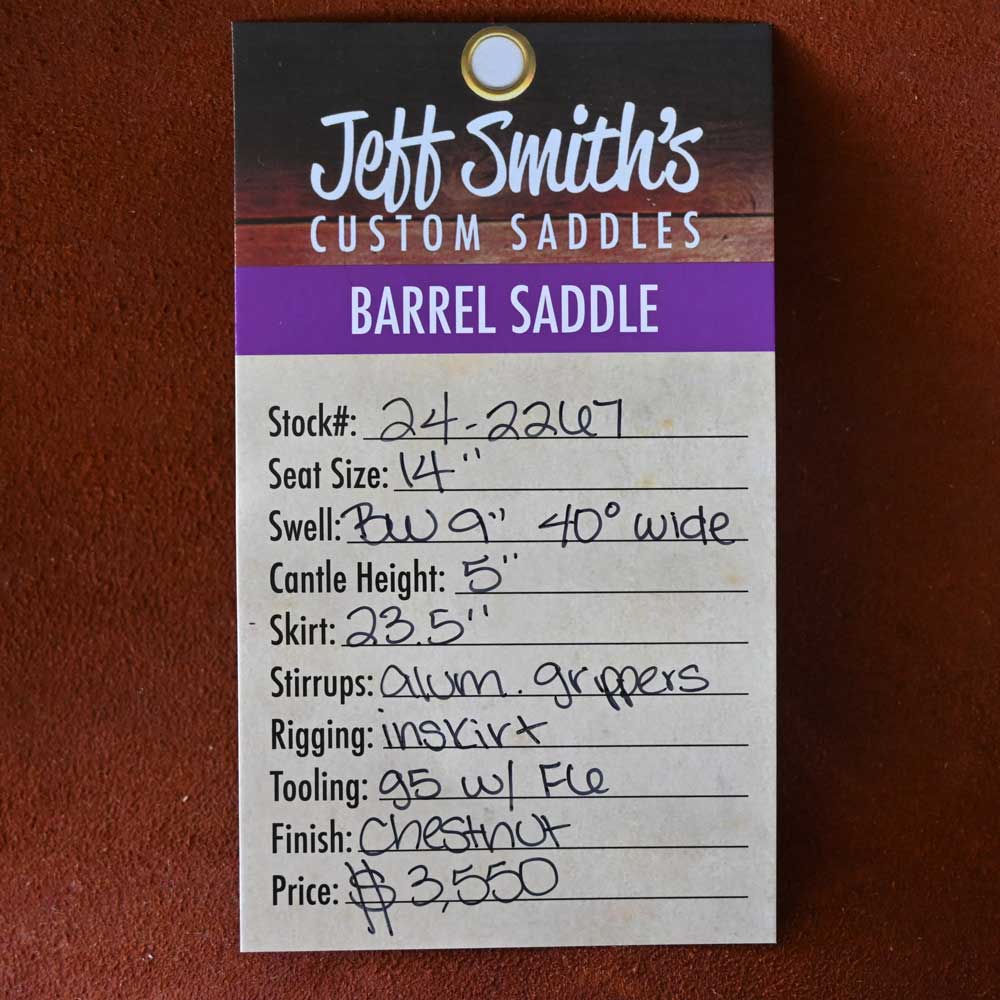 Jeff Smith's
CUSTOM SADDLES
BARREL SADDLE
Stock#: 24-2267
Seat Size: 14"
Swell: BW 9" 40° wide
Cantle Height: 5"
Skirt: 23.5"
Stirrups: alum. grippers
Rigging: inskirt
Tooling: g5 w/ Fle
Finish: Chestnut
Price: $3,550